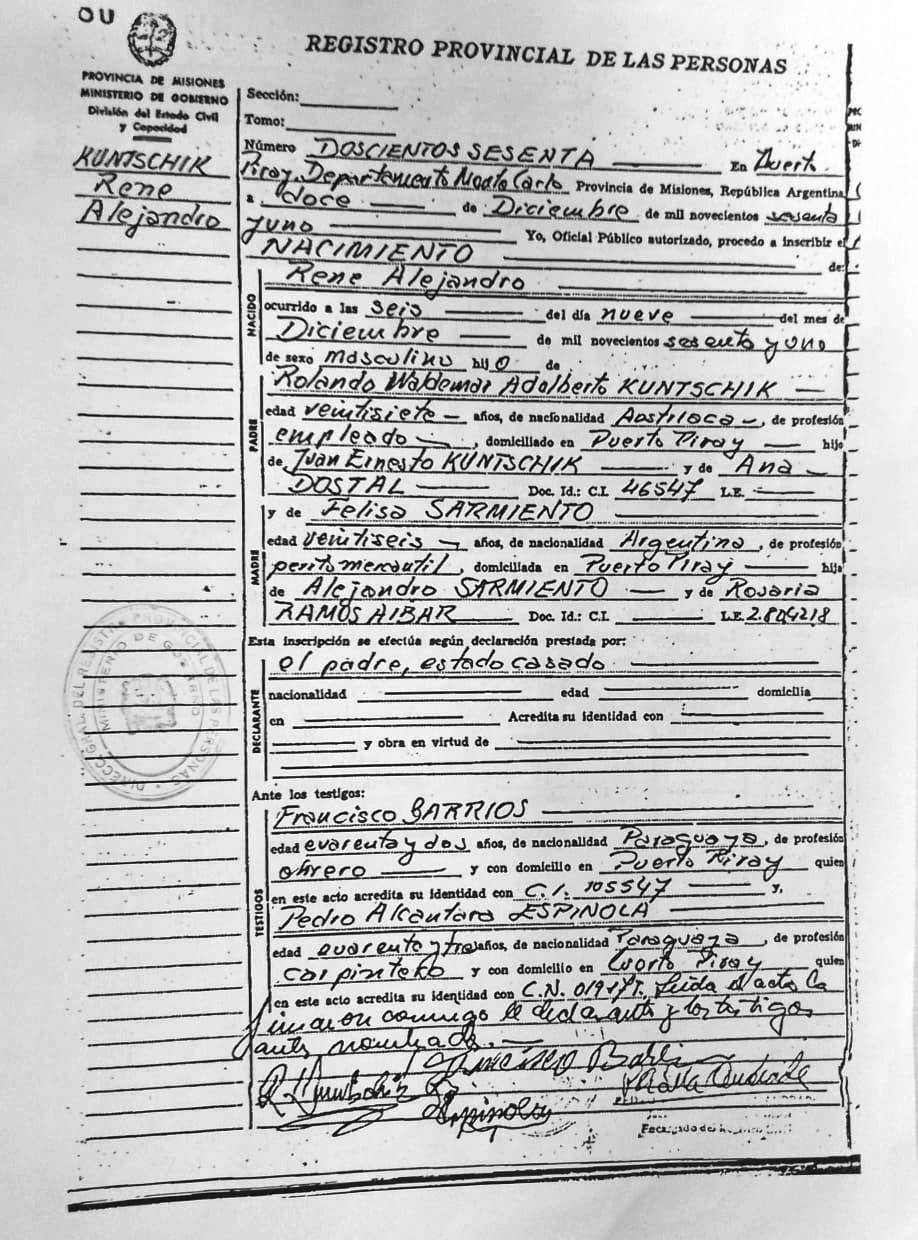 OU
REGISTRO PROVINCIAL DE LAS PERSONAS
PROVINCIA DE MISIONES
MINISTERIO DE GOBIERNO
División del Estado Civil
y Capacidad
KUNTSCHIK
Rene
Alejandro
Sección:
Tomo:
Número DOSCIENTOS SESENTA En Puerto
Piray, Departamento Monte Carlo Provincia de Misiones, República Argentina,
a doce de Diciembre de mil novecientos sesenta
y uno Yo, Oficial Público autorizado, procedo a inscribir el
NACIMIENTO de:
NACIDO
Rene Alejandro
ocurrido a las seis del día nueve del mes de
Diciembre de mil novecientos sesenta y uno
de sexo masculino hij o de
PADRE
Rolando Waldemar Adalberto KUNTSCHIK
edad veintisiete años, de nacionalidad Austriaca, de profesión
empleado, domiciliado en Puerto Piray hijo
de Juan Ernesto KUNTSCHIK y de Ana
DOSTAL Doc. Id.: C.I. 46547 L.E.
MADRE
y de Felisa SARMIENTO
edad veintiseis años, de nacionalidad Argentina, de profesión
perito mercantil, domiciliada en Puerto Piray hija
de Alejandro SARMIENTO y de Rosaria
RAMOS AIBAR Doc. Id.: C.I. L.E. 2.804218
Esta inscripción se efectúa según declaración prestada por:
DECLARANTE
el padre, estado casado
nacionalidad edad domicilia
en Acredita su identidad con
y obra en virtud de
Ante los testigos:
TESTIGOS
Francisco BARRIOS
edad cuarenta y dos años, de nacionalidad Paraguaya, de profesión
obrero y con domicilio en Puerto Piray quien
en este acto acredita su identidad con C.I. 105547 y,
Pedro Alcantara ESPINOLA
edad cuarenta y tres años, de nacionalidad Paraguaya, de profesión
carpintero y con domicilio en Puerto Piray quien
en este acto acredita su identidad con C.N. Leida el acta la
firmaron conmigo el declarante y los testigos
antes nombrados.
Francisco Barrios
R Kuntschik
Espinola
DIRECC. GRAL. DEL REGISTRO PROVINCIAL DE LAS PERSONAS
MINISTERIO DE GOBIERNO